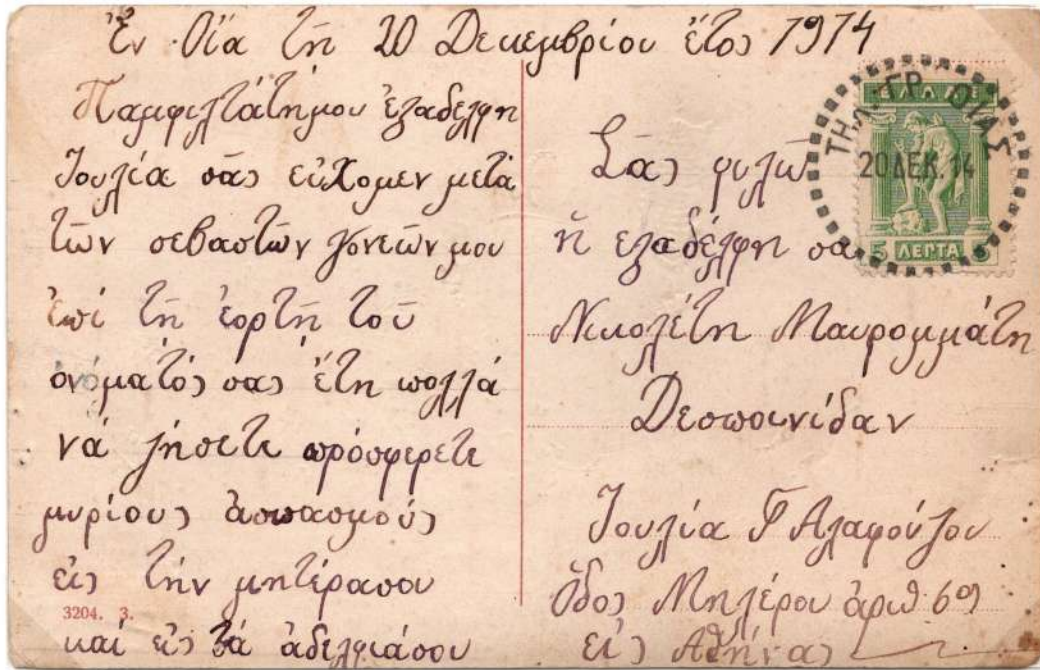 Ἐν Οἴα τῆ 20 Δεκεμβρίου ἔτος 1914
Παμφιλτάτημου ἐξαδελφη
Ἰουλία σᾶς εὐχομεν μετά
τῶν σεβαστῶν γονεών μου
ἐπί τῆ ἑορτῆ τοῦ
ὀνόματός σας ἔτη πολλά
νά ζήσετε πρόσφερετε
μυρίους ἀσπασμούς
εἰς τήν μητέρασου
καί εἰς τά ἀδελφιάσου
3204. 3.
Σᾶς φιλῶ
ἡ εξαδέλφη σα
Νικολέτη Μαυρομμάτη
Δεσποινίδαν
Ἰουλία Γ Αλαφούζου
Ὁδος Μηλέρου ἀριθ 69
εἰς Αθήνας
ΕΛΛΑΣ
5 ΛΕΠΤΑ 5
ΤΗΛ.ΓΡ. ΟΙΑΣ
20 ΔΕΚ. 14